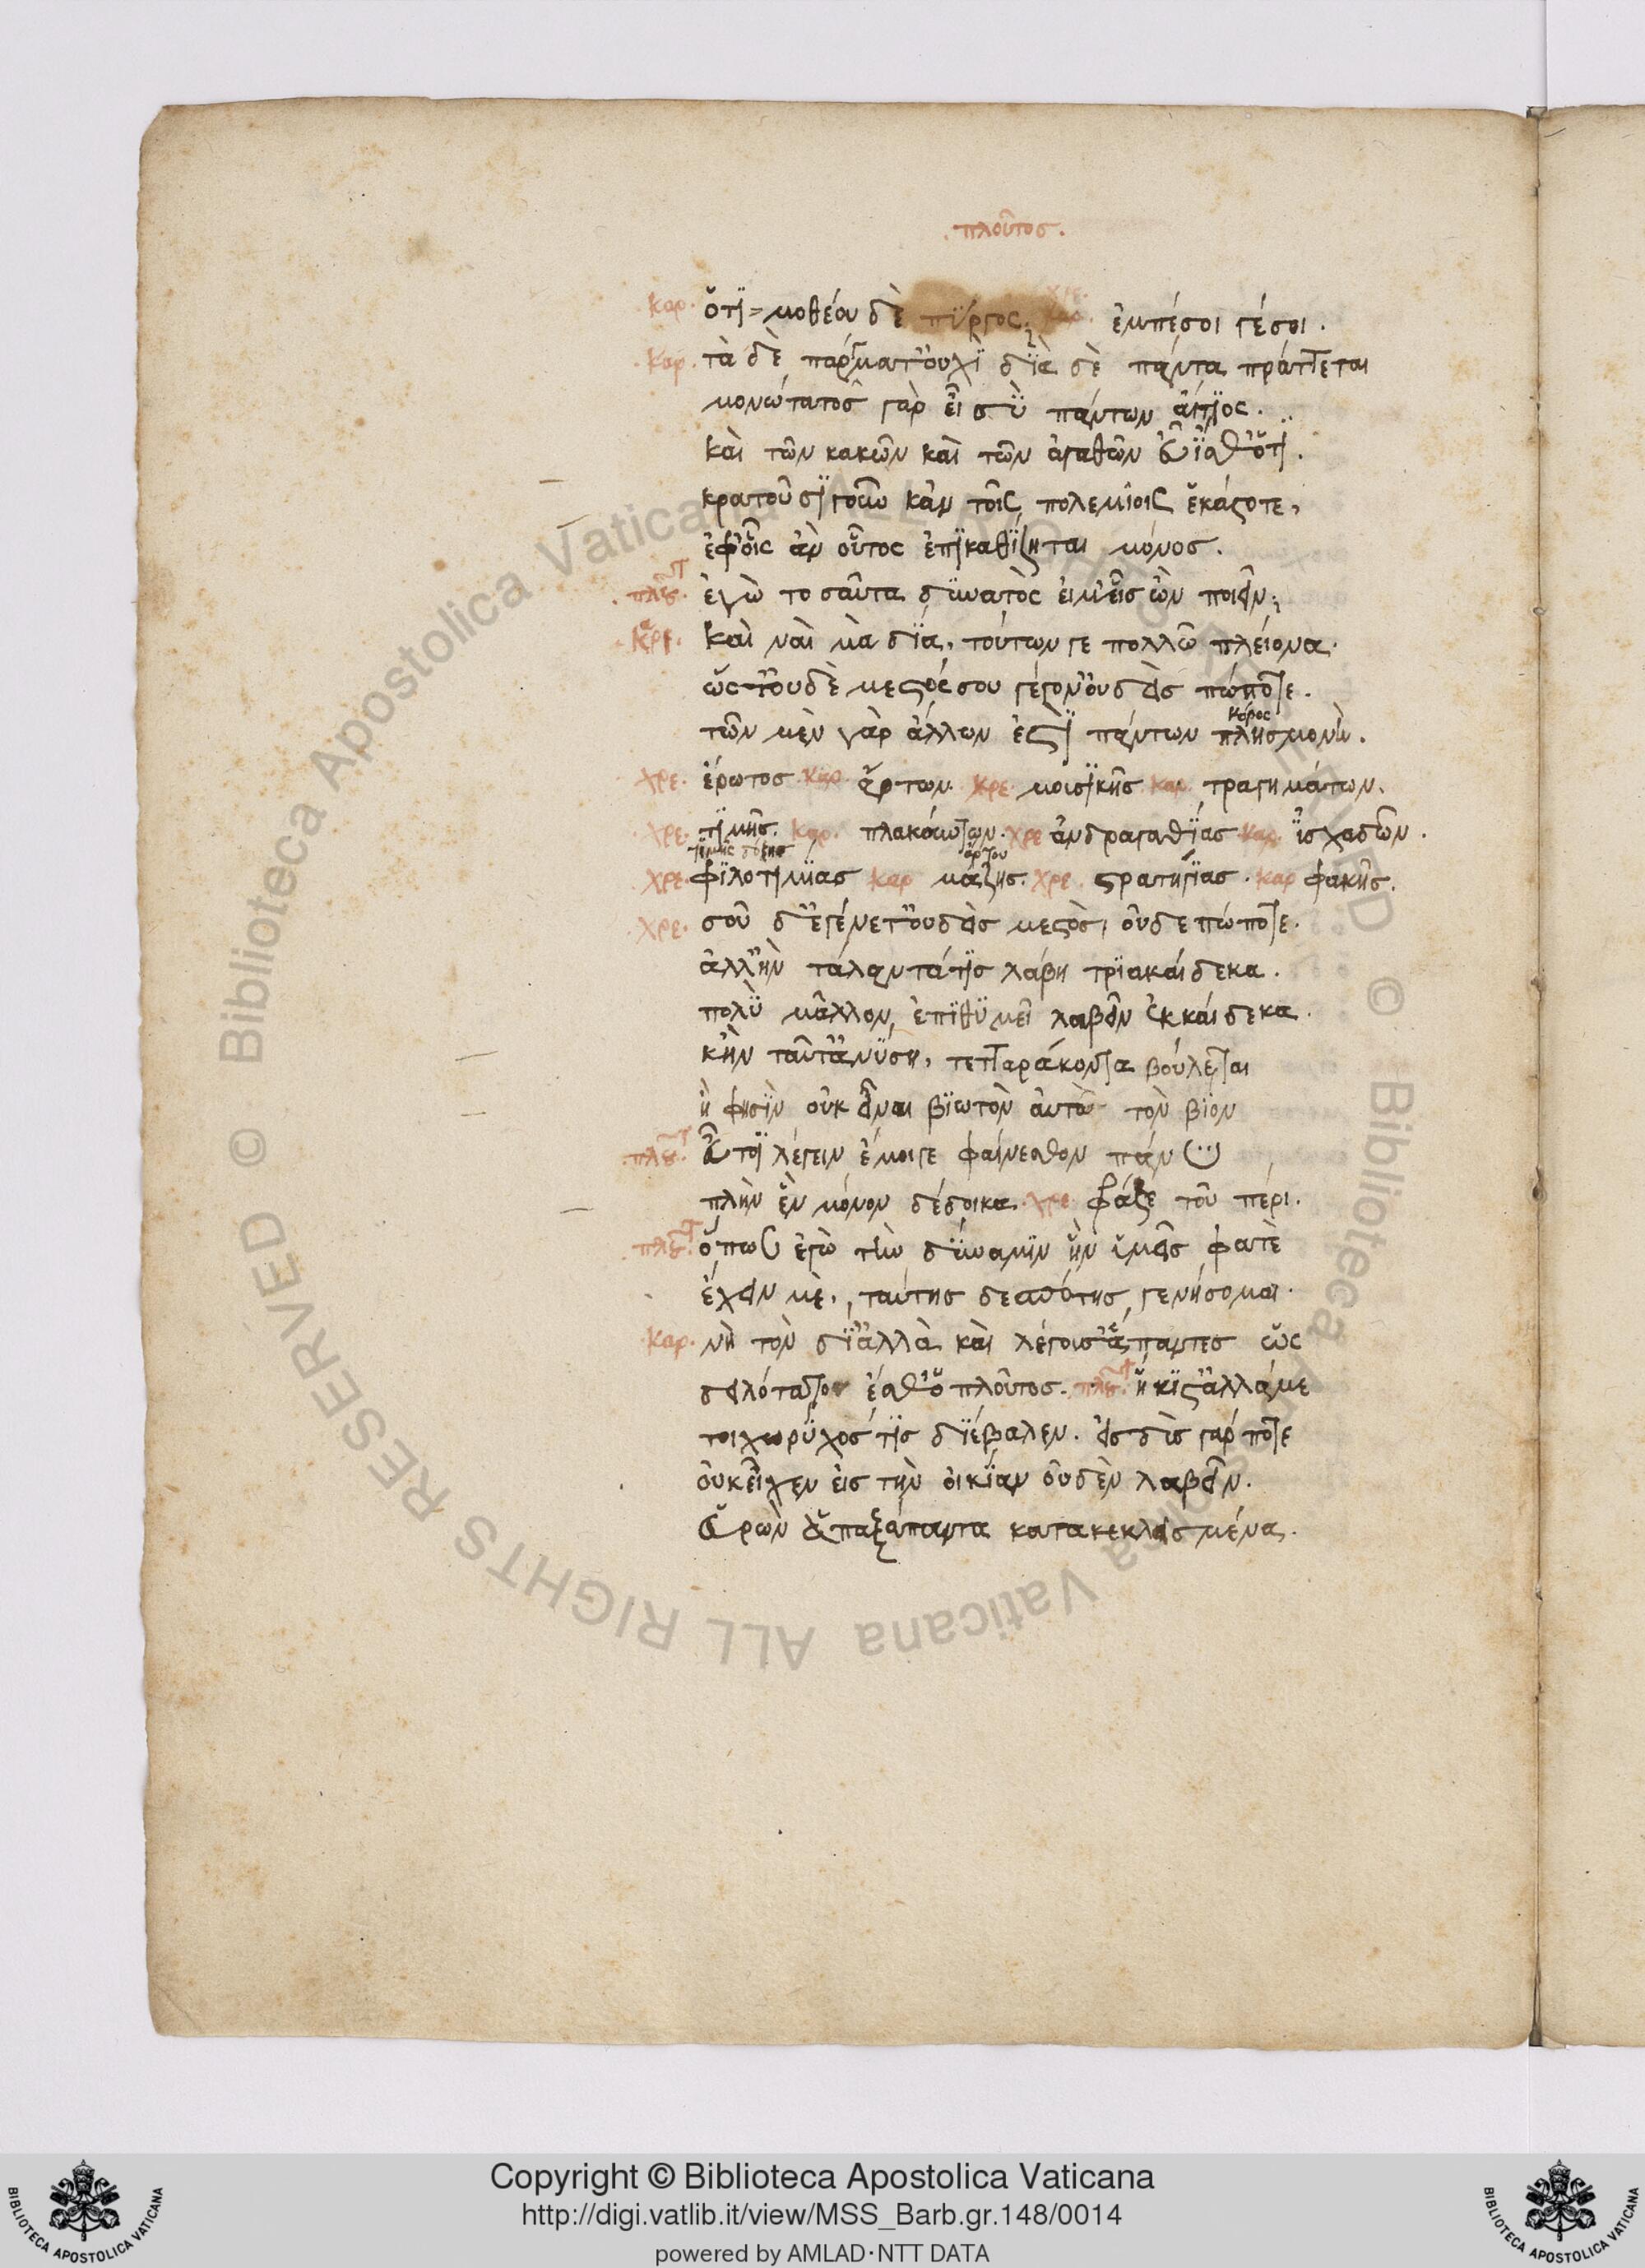 πλοῦτος.
καρ. ὅτι = μοθέου δὲ πύργος; χρε. ἐμπέσοι γέσοι.
καρ. τὰ δὲ πάργματ' οὐχὶ διὰ σὲ πάντα πράττεται
μονώτατος γὰρ εἶ σὺ πάντων αἴτιος.
καὶ τῶν κακῶν καὶ τῶν ἀγαθῶν εὖ ἴσθ' ὅτι.
κρατοῦσι γοῦν κἀν τοῖς πολεμίοις ἑκάστοτε,
ἐφ' οἷς ἂν οὗτος ἐπικαθίζηται μόνος.
πλοῦτ. ἐγὼ τοσαῦτα δυνατός εἰμ' εἷς ὢν ποιεῖν;
χρε. καὶ ναὶ μὰ δία, τούτων γε πολλῷ πλείονα.
ὥστ' οὐδὲ μεστός σου γέγον' οὐδεὶς πώποτε.
κόρος
τῶν μὲν γὰρ ἄλλων ἐστὶ πάντων πλησμονή.
χρε. ἔρωτος καρ. ἄρτων. χρε. μουσικῆς καρ. τραγημάτων.
χρε. τιμῆς. καρ. πλακούντων. χρε ἀνδραγαθίας καρ. ἰσχάδων.
τιμῆς δόξης ἄρτου
χρε. φιλοτιμίας καρ μάζης. χρε. στρατηγίας. καρ φακῆς.
χρε. σοῦ δ' ἐγένετ' οὐδεὶς μεστὸς, οὐδεπώποτε.
ἀλλ' ἢν τάλαντά τις λάβη τριακαίδεκα.
πολὺ μᾶλλον ἐπιθυμεῖ λαβεῖν ἑκκαίδεκα.
κἢν ταῦτ' ἀνύση, τετταράκοντα βούλεται
ἤ φησὶν οὐκ εἶναι βιωτὸν αὐτῷ τὸν βίον
πλοῦτ. εὖ τοι λέγειν ἔμοιγε φαίνεσθον πάνυ
πλὴν ἓν μόνον δέδοικα. χρε φράζε τοῦ πέρι.
πλοῦτ. ὅπως ἐγὼ τὴν δύναμιν ἣν ὑμεῖς φατὲ
ἔχειν μὲ, ταύτης δεσπότης γενήσομαι.
καρ. νὴ τὸν δί' ἀλλὰ καὶ λέγουσ' ἅπαντες ὡς
δειλότατον ἔσθ' ὁ πλοῦτος. πλοῦτ. ἥκιστ' ἀλλά με
τοιχωρύχος τις διέβαλεν. εἰσδὺς γάρ ποτε
οὐκ εἶχεν εἰς τὴν οἰκίαν οὐδὲν λαβεῖν.
εὑρὼν ἁπαξάπαντα κατακεκλεισμένα.
Copyright © Biblioteca Apostolica Vaticana
http://digi.vatlib.it/view/MSS_Barb.gr.148/0014
powered by AMLAD·NTT DATA